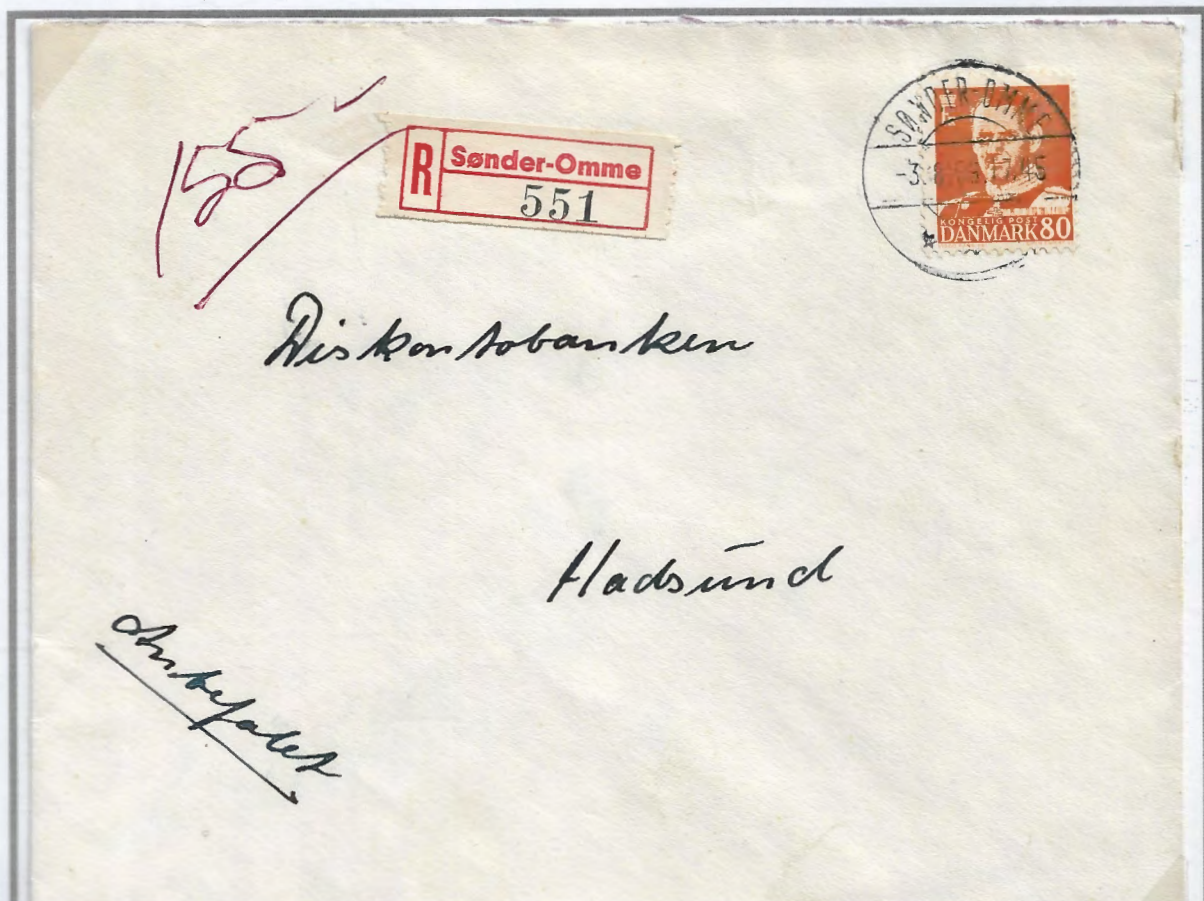 155
R Sønder-Omme
551
SØNDER-OMME
KONGELIG POST
DANMARK 80
Diskontobanken
Hadsund
Anbefalet